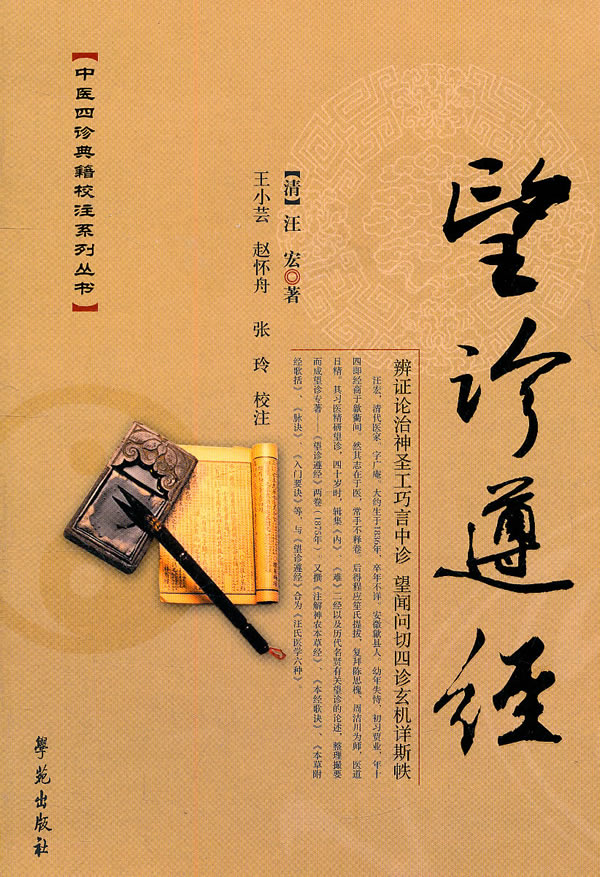 望诊遵经
辨证论治神圣工巧言中诊 望闻问切四诊玄机详斯帙
汪宏，清代医家。字广庵。大约生于1836年，卒年不详。安徽歙县人。幼年失恃，初习贾业，年十
四即经商于歙衢间。然其志在于医，常手不释卷。后得程应笙氏提拔，复拜陈思槐、周洁川为师，医道
日精。其习医精研望诊，四十岁时，辑集《内》、《难》二经以及历代名贤有关望诊的论述，整理撮要
而成望诊专著——《望诊遵经》两卷（1875年）又撰《注解神农本草经》、《本经歌诀》、《本草附
经歌括》、《脉诀》、《入门要诀》等，与《望诊遵经》合为《汪氏医学六种》。
【清】汪 宏◎著
王小芸 赵怀舟 张 玲 校注
【中医四诊典籍校注系列丛书】
學苑出版社